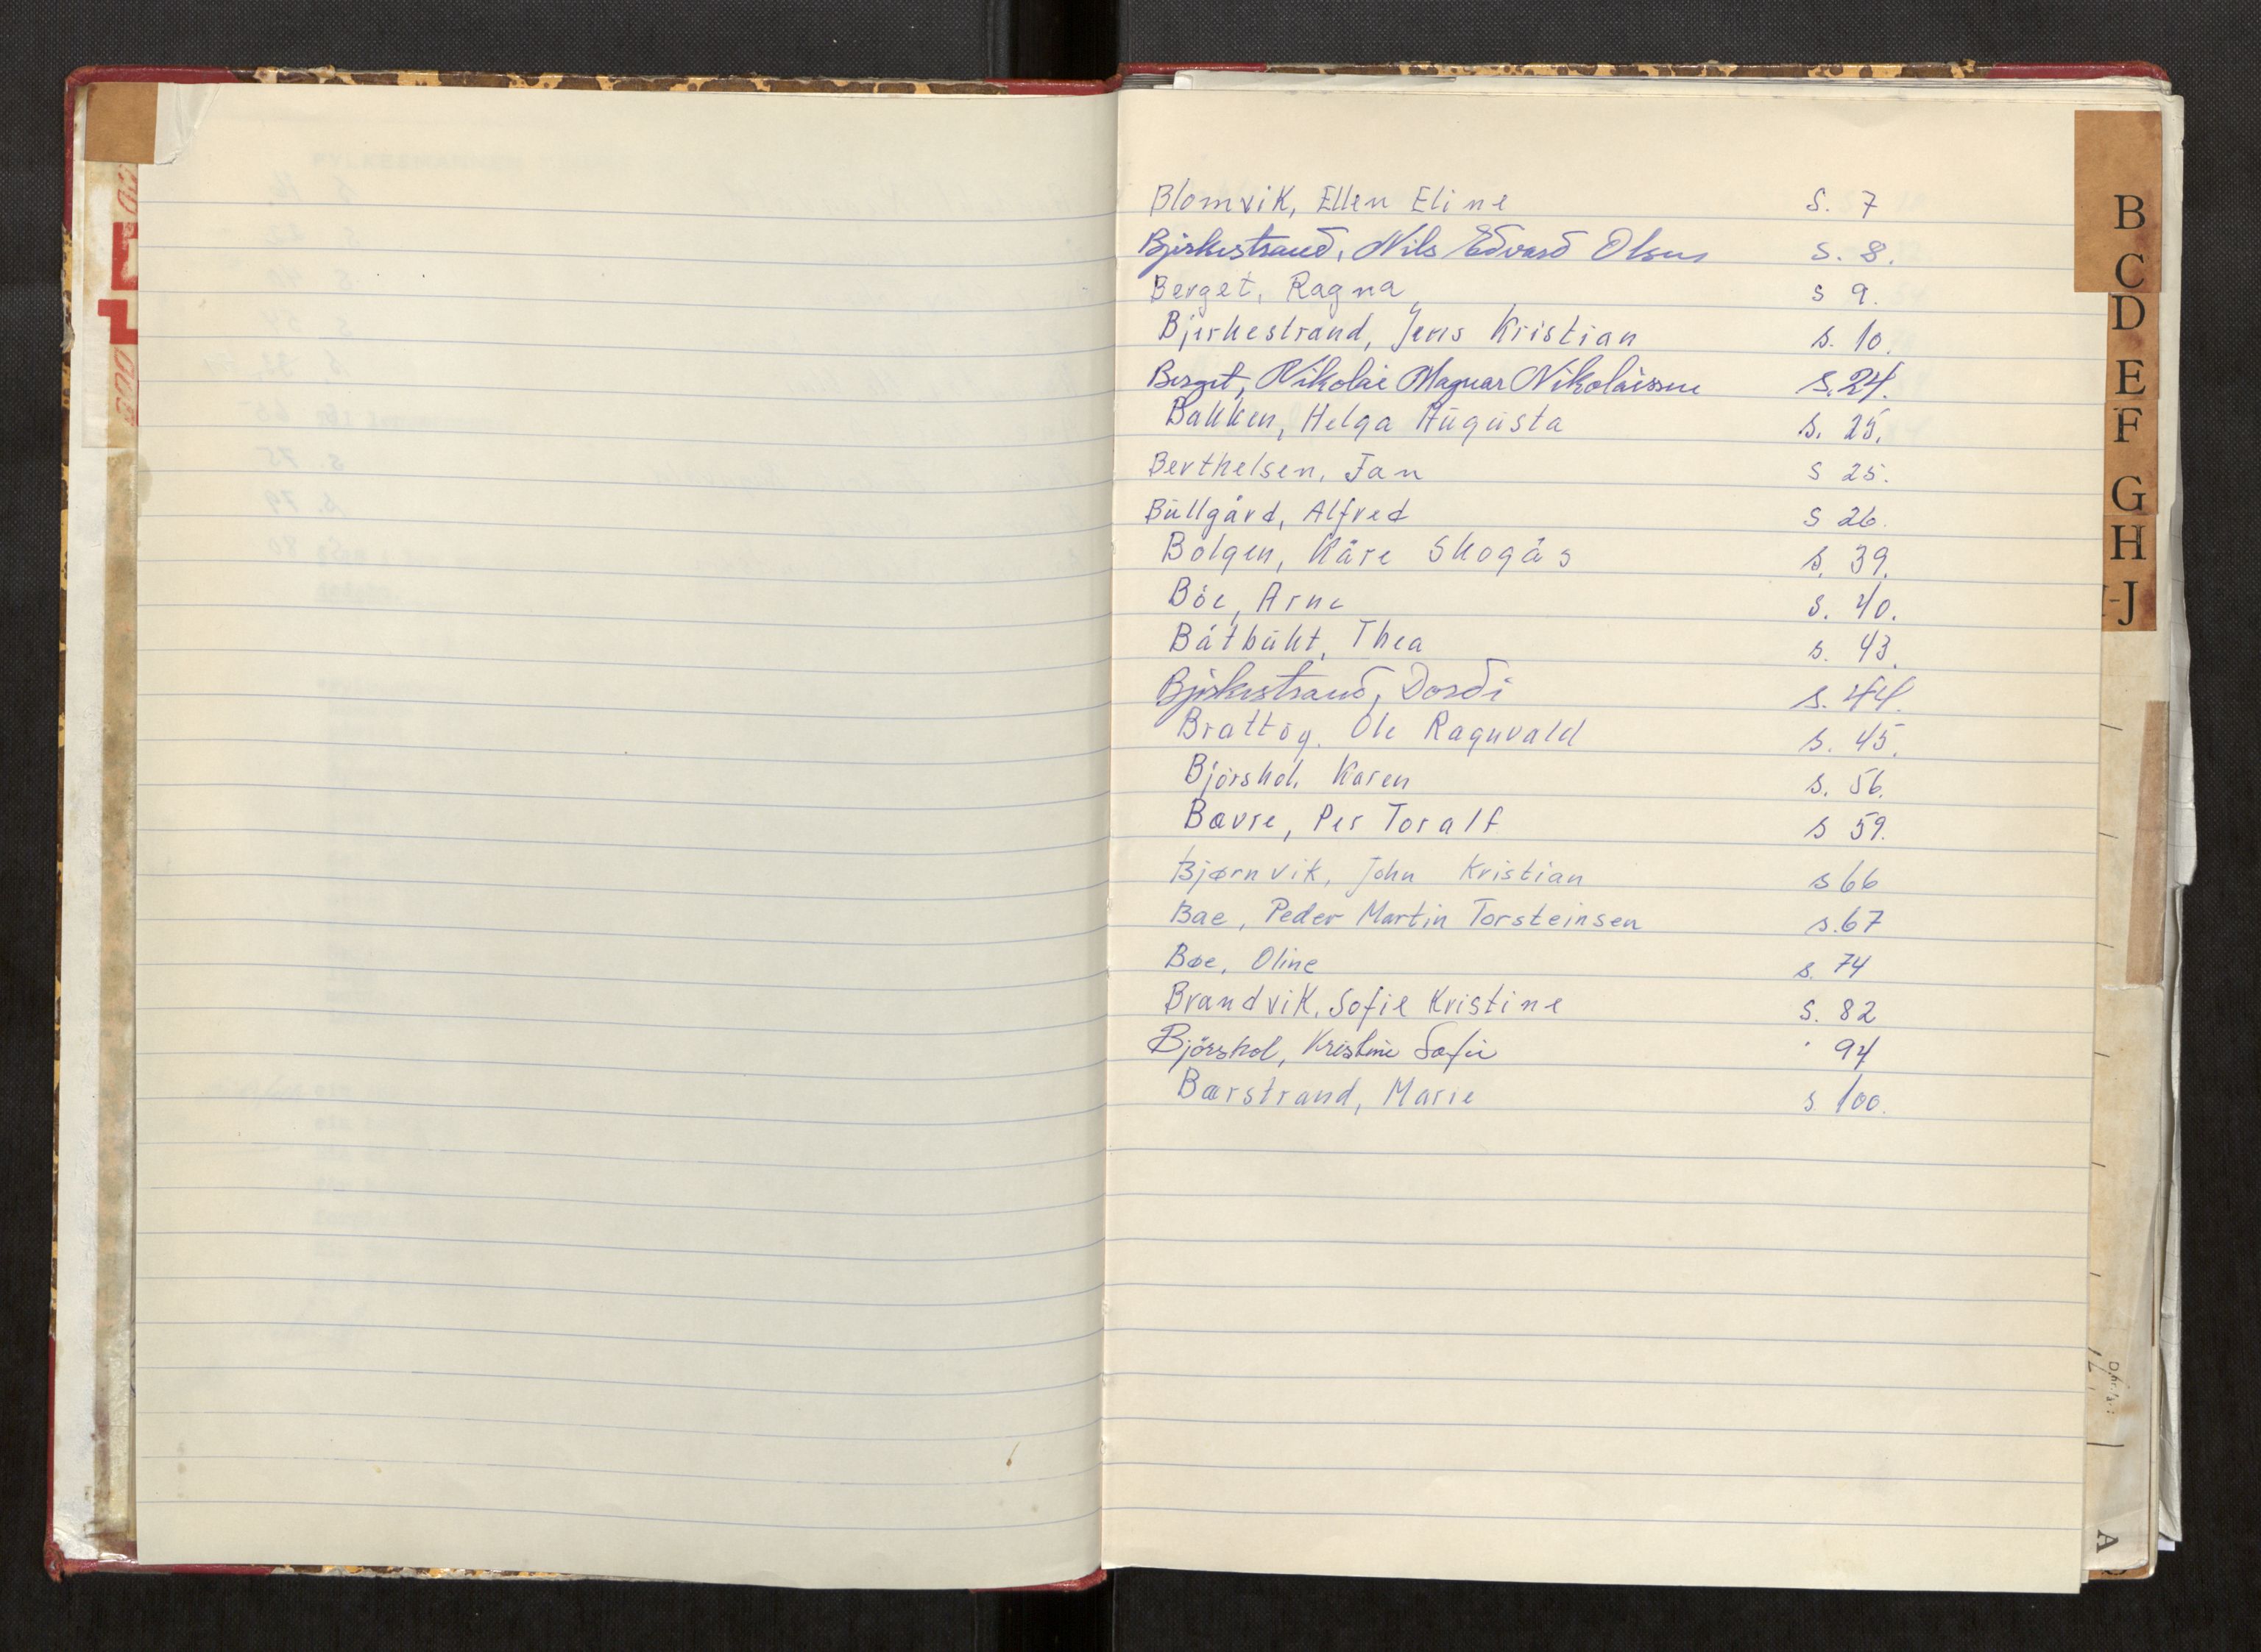 Blomvik, Ellen Eline s. 7
Bjerkestrand, Nils Edvard Olsen s. 8.
Berget, Ragna s 9.
Bjerkestrand, Jens Kristian s. 10.
Berget, Nikolai Magnar Nikolaissen s. 24.
Bakken, Helga Augusta s. 25.
Berthelsen, Jan s 25.
Bullgård, Alfred s 26.
Bolgen, Kåre Skogås s. 39.
Böe, Arne s. 40.
Båtbukt, Thea s. 43.
Bjerkestrand, Dordi s. 44.
Brattöy, Ole Ragnvald s. 45.
Björskol, Karen s. 56.
Bævre, Per Toralf s 59.
Bjørnvik, John Kristian s 66
Bae, Peder Martin Torsteinsen s. 67
Bøe, Oline s. 74
Brandvik, Sofie Kristine s. 82
Björskol, Kristine Sofie 94
Bærstrand, Marie s 100.
B
C
D
E
F
G
H
I-J
A